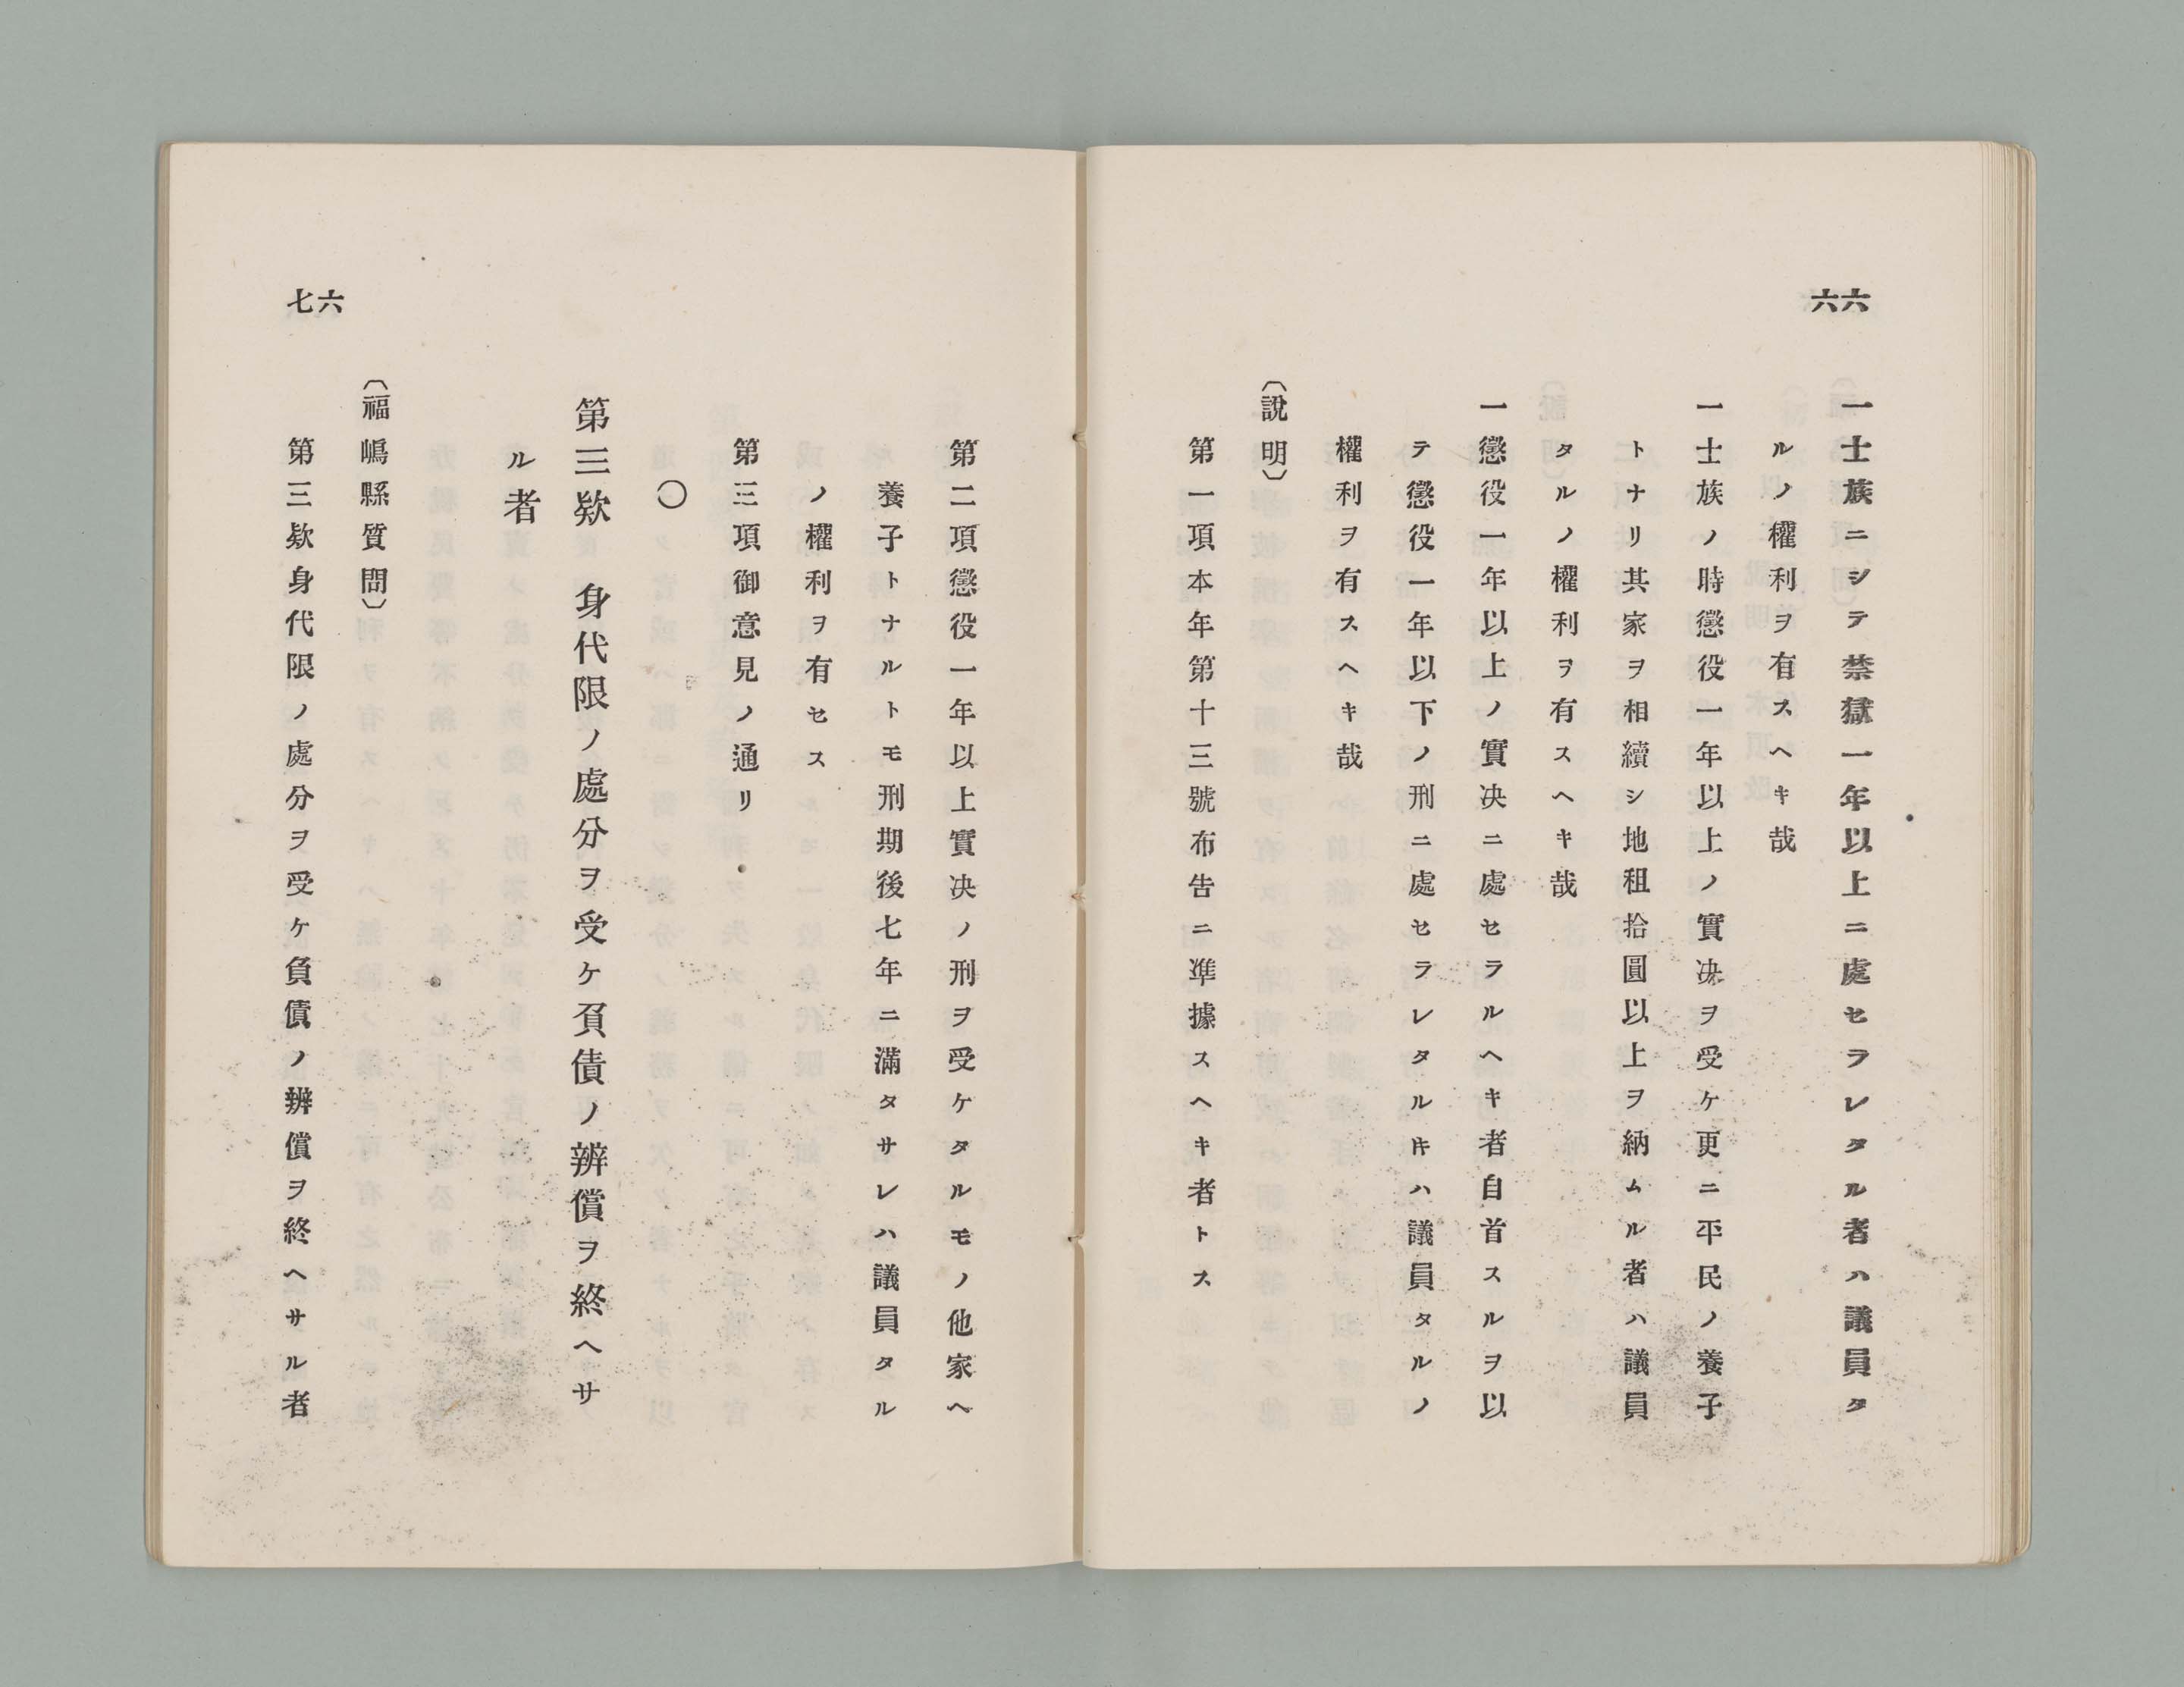 六六
一士族ニシテ禁獄一年以上ニ處セラレタル者ハ議員タ
ルノ權利ヲ有スヘキ哉
一士族ノ時懲役一年以上ノ實决ヲ受ケ更ニ平民ノ養子
トナリ其家ヲ相續シ地租拾圓以上ヲ納ムル者ハ議員
タルノ權利ヲ有スヘキ哉
一懲役一年以上ノ實决ニ處セラルヘキ者自首スルヲ以
テ懲役一年以下ノ刑ニ處セラレタルヰハ議員タルノ
權利ヲ有スヘキ哉
〔說明〕
第一項本年第十三號布告ニ凖據スヘキ者トス
第二項懲役一年以上實决ノ刑ヲ受ケタルモノ他家ヘ
養子トナルトモ刑期後七年ニ滿タサレハ議員タル
ノ權利ヲ有セス
第三項御意見ノ通リ
〇
第三欵　身代限ノ處分ヲ受ケ負債ノ辨償ヲ終ヘサ
ル者
〔福嶋縣質問〕
第三欵身代限ノ處分ヲ受ケ負債ノ辨償ヲ終ヘサル者
六七